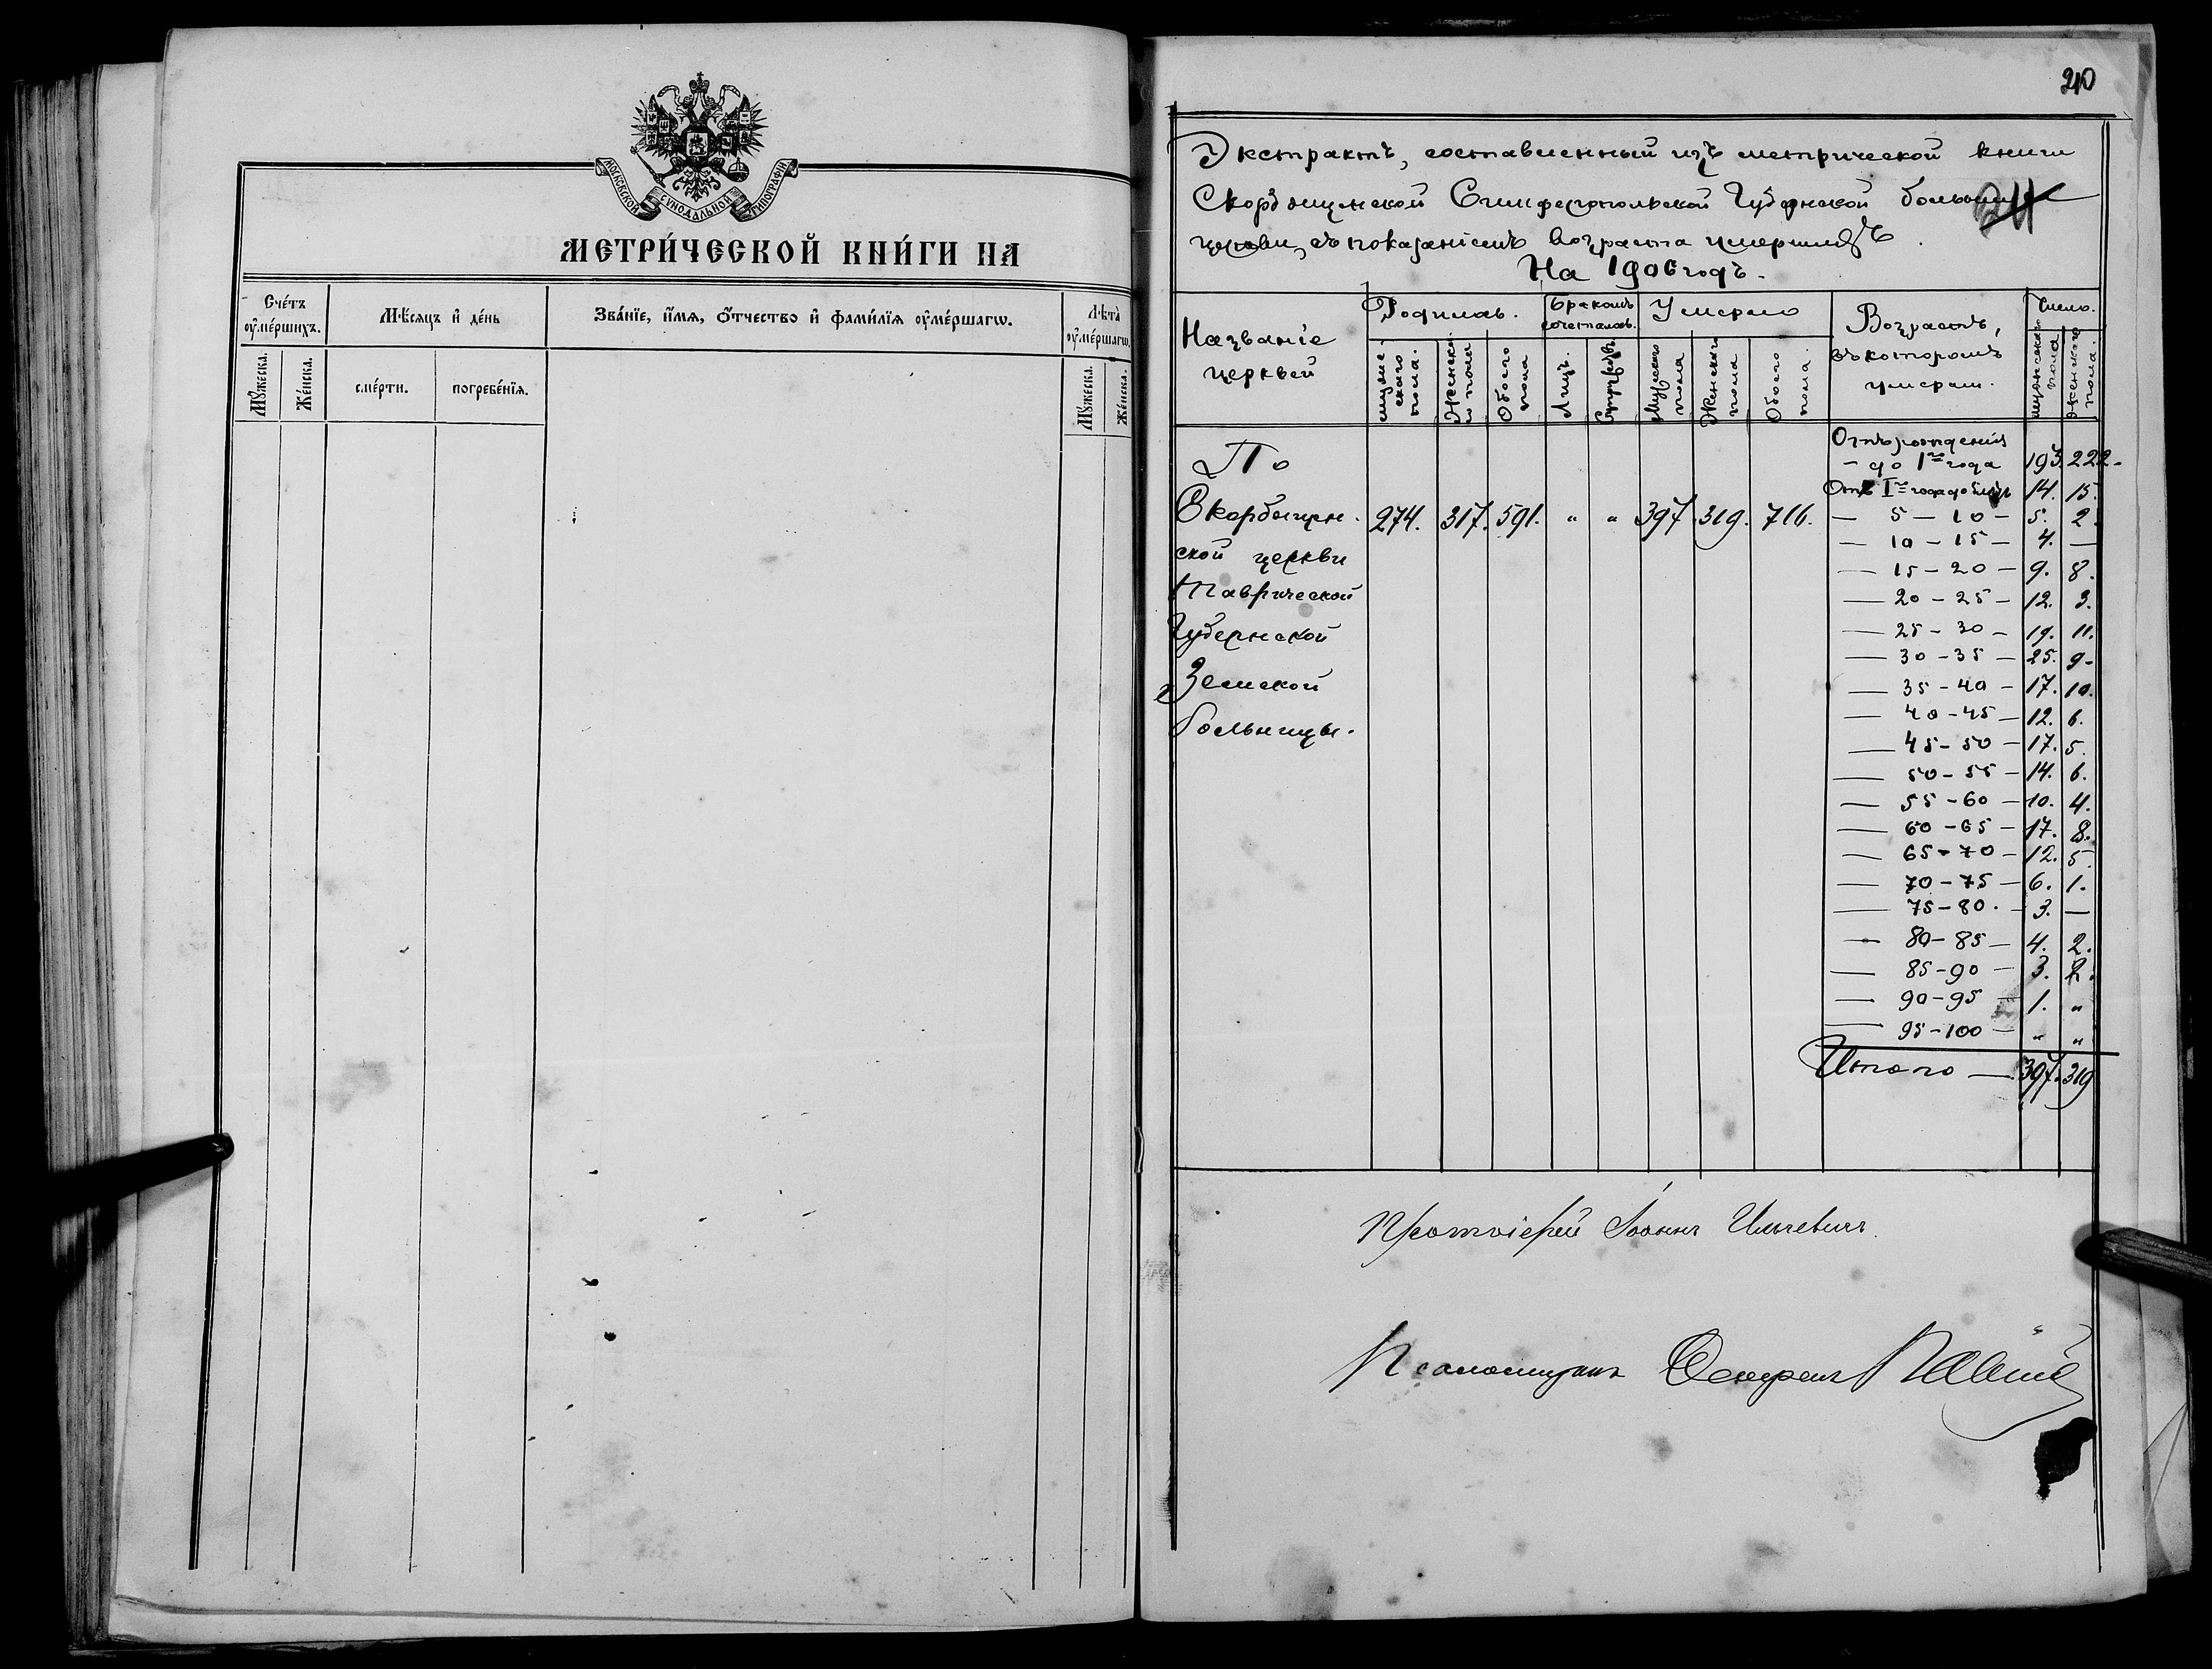 МОСКОВСКОЙ СѴНОДАЛЬНОЙ ТИПОГРАФІИ
МЕТРИ́ЧЕСКОЙ КНИ́ГИ НА
Счéтъ оу҆мéршихъ.
Мѣ́сяцъ и҆ дéнь
Звáнїе, и҆́мѧ, ѻ҆́тчество и҆ фами́лїѧ оу҆мéршагѡ.
Лѣ́та оу҆мéршагѡ.
Мꙋ́жеска.
Жéнска.
смéрти.
погребéнїѧ.
Мꙋ́жеска.
Жéнска.
210
Экстрактъ, составленный изъ метрической книги
Скорбященской Симферопольской Губернской больницы
церкви, съ показаніемъ возраста умершихъ.
На 1906 годъ.
Названіе церквей
Родилось.
Бракомъ сочеталось.
Умерло
Возрастъ, въ которомъ умерли.
Число.
мужескаго пола.
Женскаго пола
Обоего пола
Лицъ.
Супружествъ
Мужескаго пола
Женскаго пола
Обоего пола.
мужескаго пола
женскаго пола.
По
Скорбящен-
ской церкви
Таврической
Губернской
Земской
больницы.
274. 317. 591. „ „ 397 319. 716.
Отъ рожденія
— до 1го года 193. 222.
Отъ 1го года до 5 лѣтъ 14. 15.
— 5 — 10 — 5. 2.
— 10 — 15 — 4. —
— 15 — 20 — 9. 8.
— 20 — 25 — 12. 3.
— 25 — 30 — 19. 11.
— 30 — 35 — 25. 9.
— 35 — 40 — 17. 10.
— 40 — 45 — 12. 6.
— 45 — 50 — 17. 5.
— 50 — 55 — 14. 6.
— 55 — 60 — 10. 4.
— 60 — 65 — 17. 8.
— 65 — 70 — 12. 5.
— 70 — 75 — 6. 1.
— 75 — 80. — 3. —
— 80 — 85 — 4. 2.
— 85 — 90 — 3. 2.
— 90 — 95 — 1. „
— 95 — 100 — „ „
Итого — 397. 319
Протоіерей Іоаннъ
Псаломщикъ